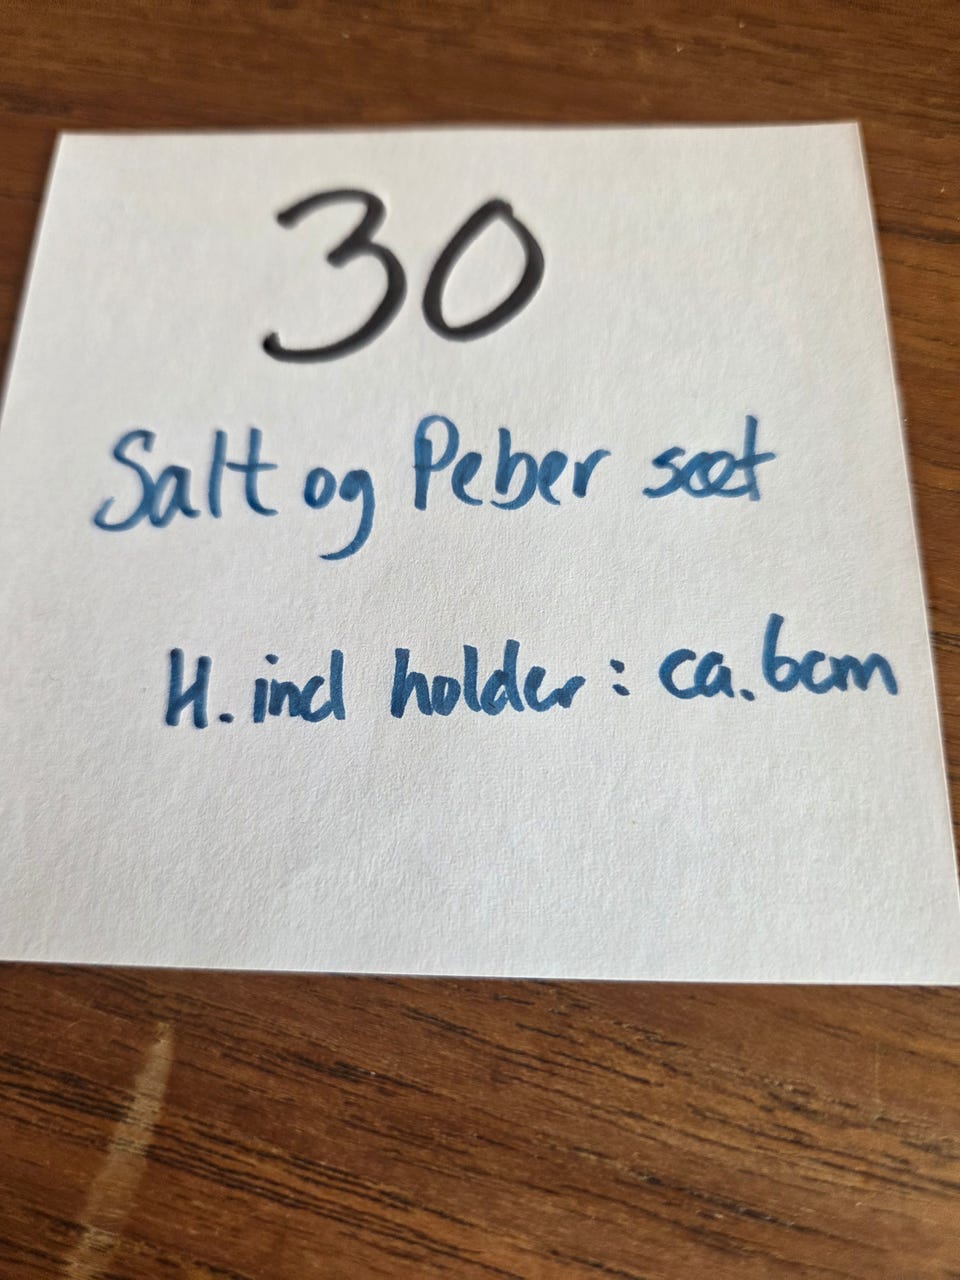 30
Salt og Peber sæt
H. incl holder: ca. 6cm